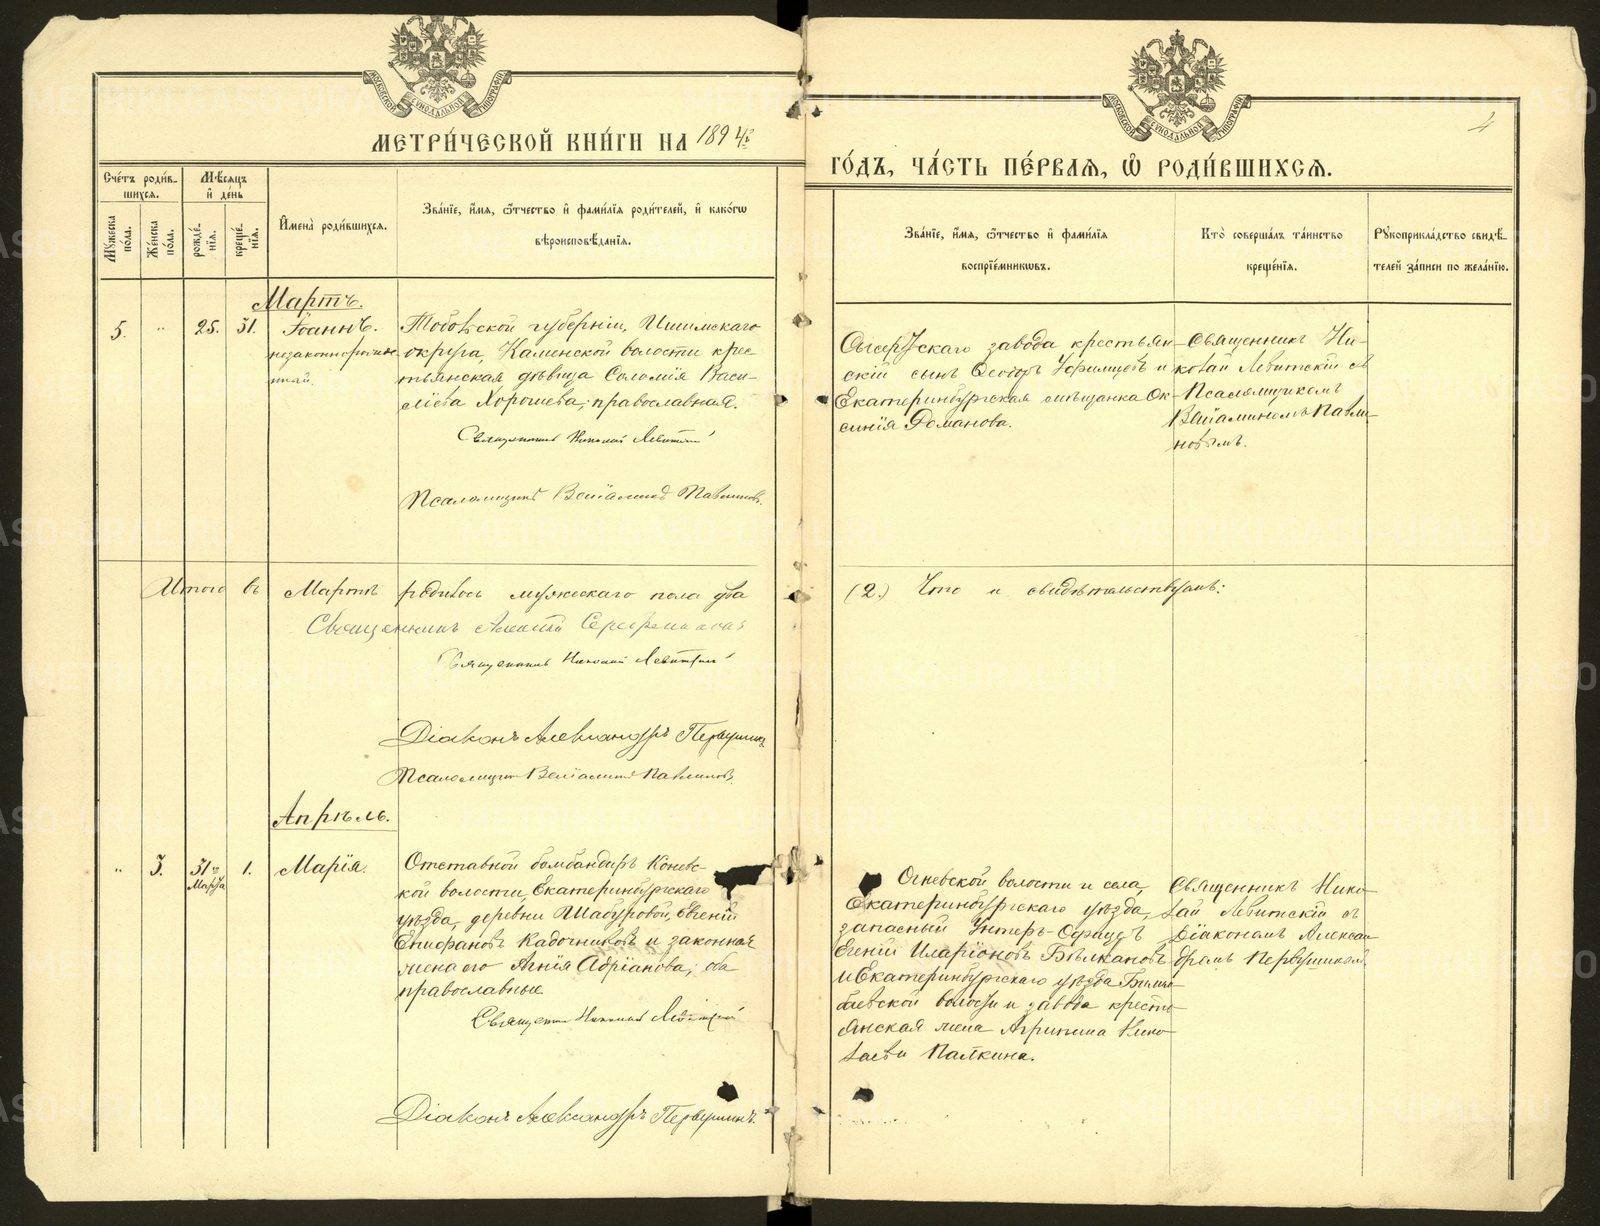 МОСКОВСКОЙ СѴНОДАЛЬНОЙ ТИПОГРАФІИ
МЕТРИ́ЧЕСКОЙ КНИ́ГИ НА 1894й
Сче́тъ роди́в-
шихся.
Мѣ́сяцъ
и҆ де́нь
Мꙋ́жеска
по́ла.
Же́нска
по́ла.
рожде́-
нїя.
креще́-
нїя.
И҆мена̀ роди́вшихся.
Зва́нїе, и҆́мя, ѻ҆́тчество и҆ фами́лїя роди́телей, и҆ како́гѡ
вѣроисповѣ́данїя.
Мартъ.
5. " 25. 31. Іоаннъ.
незаконнорожден-
ный.
Тобольской губерніи, Ишимскаго
округа, Каменской волости крес-
тьянская дѣвица Соломія Васи-
ліева Хорошева, православная.
Священникъ Николай Левитскій
Псаломщикъ Веніаминъ Павлиновъ.
Итого въ Мартѣ родилось мужескаго пола два
Священникъ Николай Левитскій
Діаконъ Александръ Первушинъ
Псаломщикъ Веніаминъ Павлиновъ
Апрѣль.
" 3. 31го Марта 1. Марія.
Отставной бомбандиръ Конев-
ской волости, Екатеринбургскаго
уѣзда, деревни Шабуровой, Евгеній
Епифановъ Кадочниковъ и законная
жена его Агнія Адріанова; оба
православные.
Священникъ Николай Левитскій
Діаконъ Александръ Первушинъ.
МОСКОВСКОЙ СѴНОДАЛЬНОЙ ТИПОГРАФІИ
4
ГО́ДЪ, ЧА́СТЬ ПЕ́РВАЯ, Ѽ РОДИ́ВШИХСЯ.
Зва́нїе, и҆́мя, ѻ҆́тчество и҆ фами́лїя
воспрїе́мникѡвъ.
Кто̀ соверша́лъ та́инство
креще́нїя.
Рꙋкоприкла́дство свидѣ́-
телей за́писи по жела́нїю.
Сысертскаго завода крестьян-
скій сынъ Ѳеодоръ Уфимцевъ и
Екатеринбургская мѣщанка Ок-
синія Романова.
Священникъ Ни-
колай Левитскій съ
Псаломщикомъ
Веніаминомъ Павли-
новымъ.
(2.) Что и свидѣтельствуемъ:
Огневской волости и села,
Екатеринбургскаго уѣзда,
запасный Унтеръ-Офицеръ
Евгеній Иларіоновъ
и Екатеринбургскаго уѣзда Билим-
баевской волости и завода кресть-
янская жена Агрипина Нико-
лаева Палкина.
Священникъ Нико-
лай Левитскій съ
Діакономъ Алексан-
дромъ Первушинымъ.
METRIKI.GASO-URAL.RU